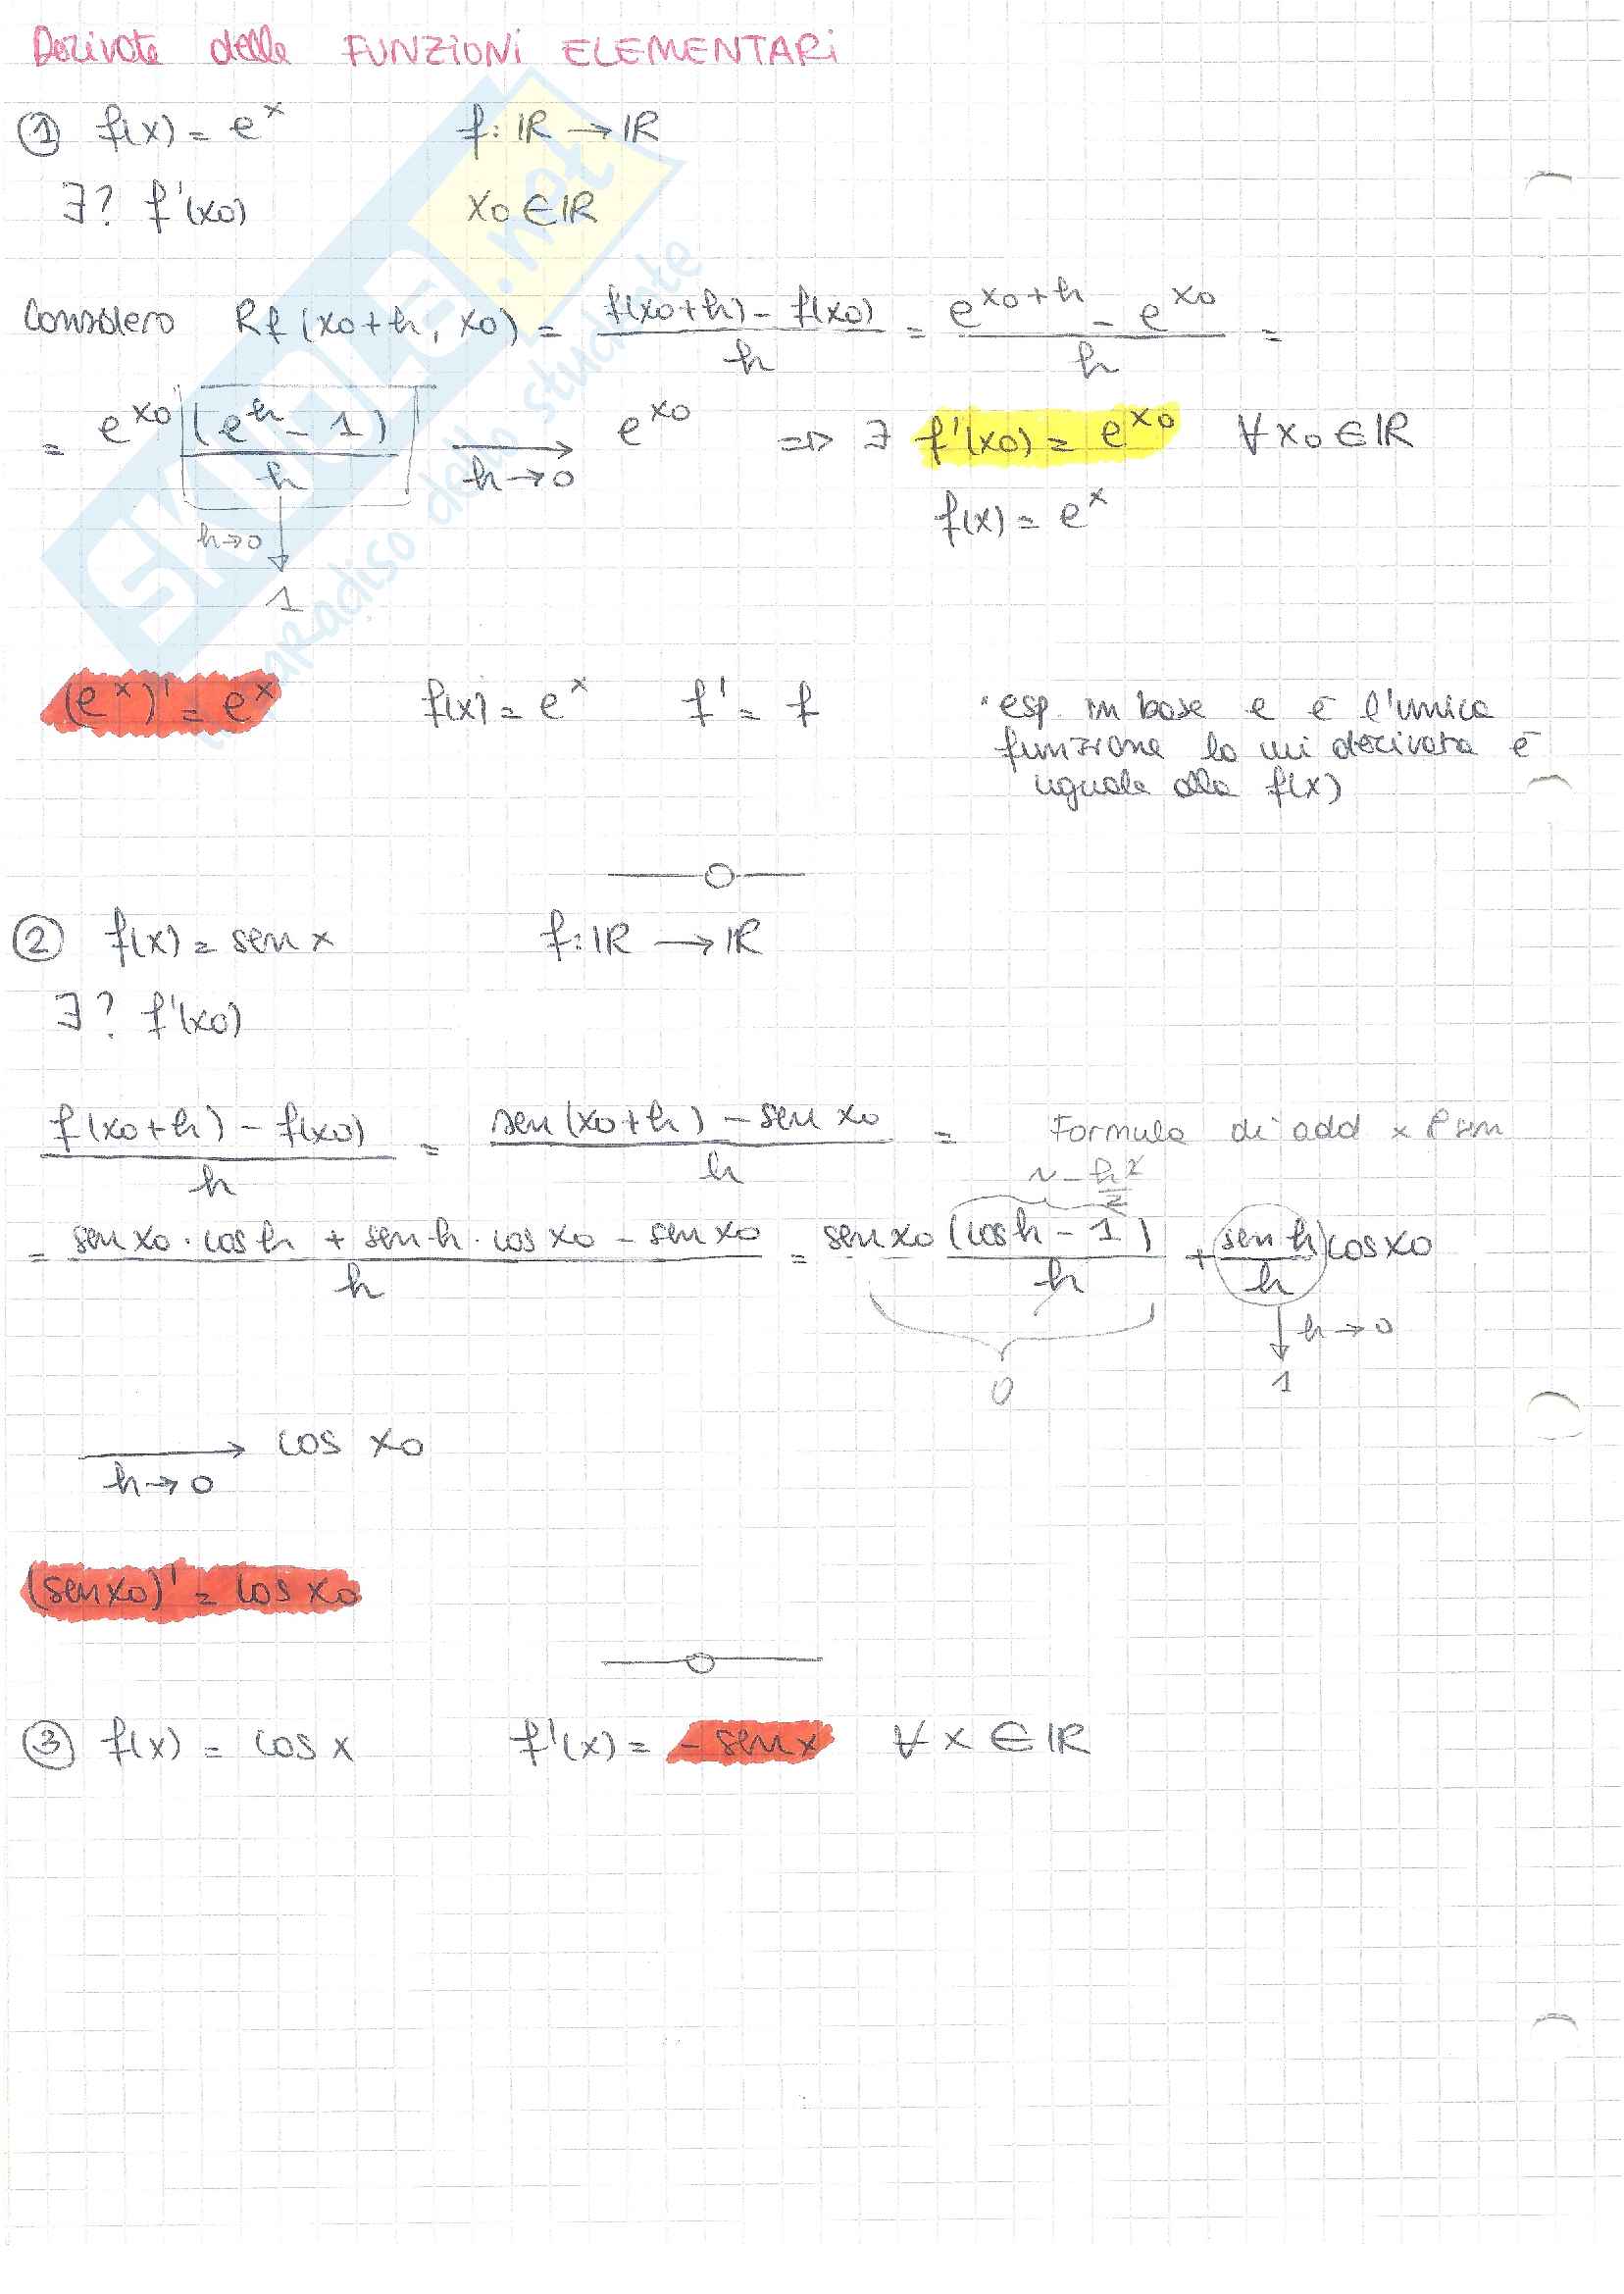 Derivate delle FUNZIONI ELEMENTARI
① f(x) = e^x f: ℝ → ℝ
∃? f'(x0) x0 ∈ ℝ
Considero Rf (x0+h, x0) = \frac{f(x0+h) - f(x0)}{h} = \frac{e^{x0+h} - e^{x0}}{h} =
= e^{x0} \frac{(e^h - 1)}{h} \xrightarrow{h→0} e^{x0} ⇒ ∃ f'(x0) = e^{x0} ∀ x0 ∈ ℝ
f(x) = e^x
h→0 ↓
1
(e^x)' = e^x f(x) = e^x f' = f
• esp. in base e è l'unica
funzione la cui derivata è
uguale alla f(x)
② f(x) = sen x f: ℝ → ℝ
∃? f'(x0)
\frac{f(x0+h) - f(x0)}{h} = \frac{sen(x0+h) - sen x0}{h} = Formula di add x
~ - \frac{h^2}{2}
= \frac{sen x0 · cos h + sen h · cos x0 - sen x0}{h} = sen x0 \frac{(cos h - 1)}{h} + \frac{sen h}{h} cos x0
↓ h→0
0 1
\xrightarrow{h→0} cos x0
(sen x0)' = cos x0
③ f(x) = cos x f'(x) = - sen x ∀ x ∈ ℝ
SKUOLA.net
il paradiso dello studente